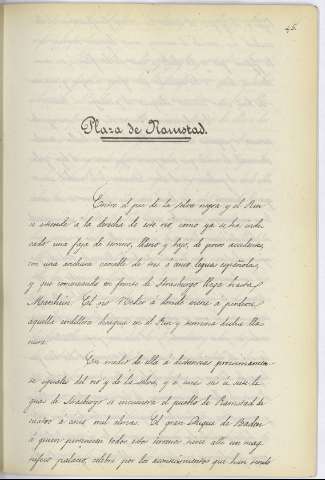 45.
Plaza de Ramstad.
Entre el pie de la selva negra y el Rin
se estiende á la derecha de este rio como ya se ha indi-
cado una faja de terreno, llano y bajo, de pocos accidentes,
con una anchura variable de tres á cinco leguas españolas,
y que comenzando en frente de Strasburgo llega hasta
Manheim. El rio Neker á donde viene á perderse
aquella cordillera desagua en el Rin y termina dicha lla-
nura.
En medio de ella á distancias proximamen-
te iguales del rio y de la selva, y á unas seis ó siete le-
guas de Strasburgo se encuentra el pueblo de Ramstad de
cuatro á cinco mil almas. El gran Duque de Baden
á quien pertenecen todos estos terrenos tiene alli un mag-
nifico palacio, célebre por los acontecimientos que han tenido